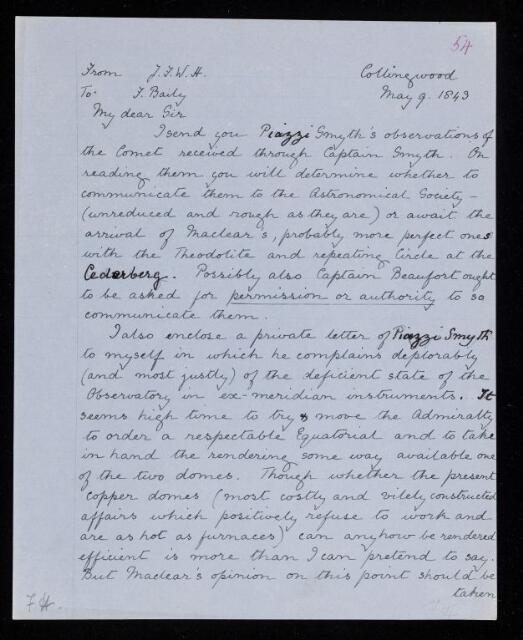 54
From J.F.W.H. Collingwood
To F. Baily May 9. 1843
My dear Sir
I send you Piazzi Smyth's observations of
the Comet received through Captain Smyth. On
reading them you will determine whether to
communicate them to the Astronomical Society –
(unreduced and rough as they are) or await the
arrival of Maclear's, probably more perfect ones
with the Theodolite and repeating Circle at the
Cederberg. Possibly also Captain Beaufort ought
to be asked for permission or authority to so
communicate them.
I also enclose a private letter of Piazzi Smyth
to myself in which he complains deplorably
(and most justly) of the deficient state of the
Observatory in ex-meridian instruments. It
seems high time to try & move the Admiralty
to order a respectable Equatorial and to take
in hand the rendering some way available one
of the two domes. Though whether the present
copper domes (most costly and vilely constructed
affairs which positively refuse to work and
are as hot as furnaces) can anyhow be rendered
efficient is more than I can pretend to say.
But Maclear's opinion on this point should be
taken